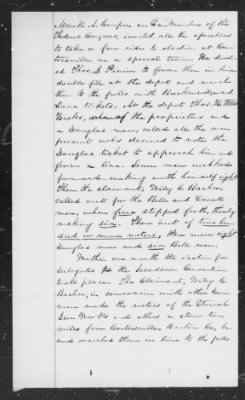 Mark A. Cooper, an Ex Member of the
Federal Congress, invited all the operatives
to take a free ride to election at Car-
tersville on a special train. He direct-
ed Thos. to form them in line
double file at the depot and march
them to the polls with Breckinridge and
Lane tickets. At the depot Thos.
one of the proprietors and
a Douglas man, called all the men
present who desired to vote the
Douglas ticket to approach him and
form a line. Seven men marched
forward making with himself eight
Then the claimant, Wiley C.
called out for the Bell and Everett
men, when five stepped forth, thereby
making six. Thus out of
there were eight
Douglas men and six Bell men.
Within one month the election for
delegates to the Secession Convention
took place. The Claimant, Wiley C.
in connexion with other Union
men made the voters of the Etowah
Iron Works and others a stand two
miles from Cartersville, Co. Ga.
and marched them in line to the polls